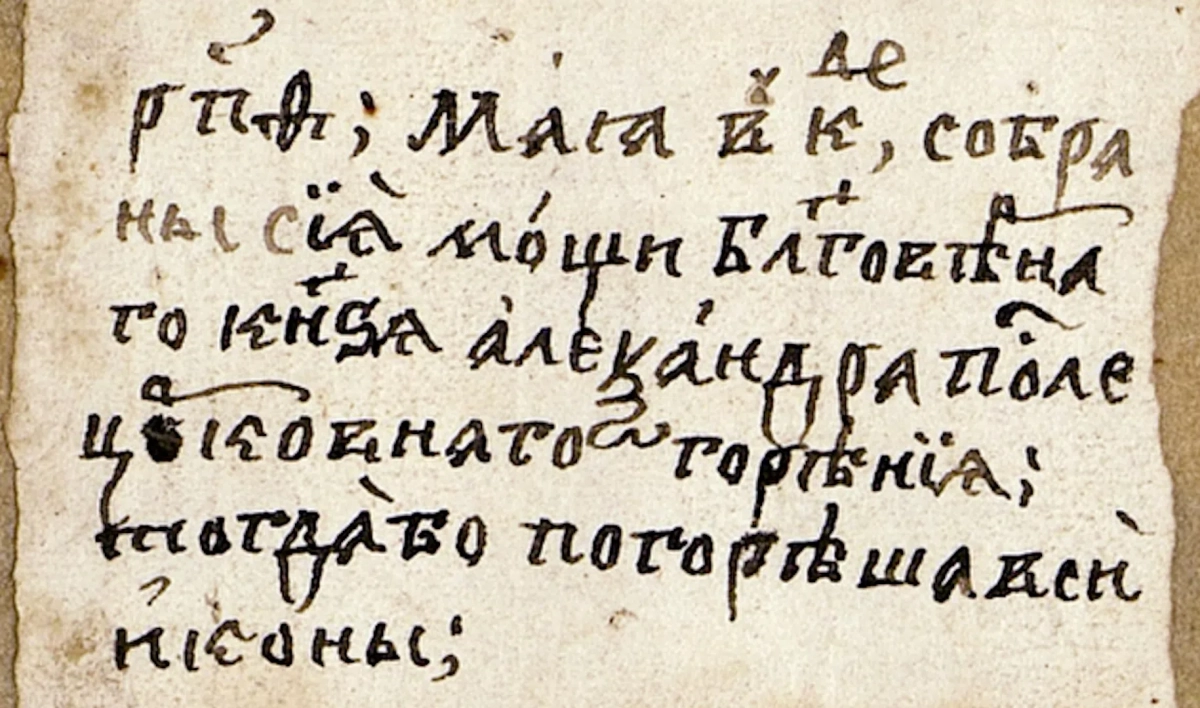 рп҃ѳ; Маіа в҃ кде, собра
ны сїѧ̀ мо́щи бл҃говѣрна
го кн҃ѕѧ алеѯа́ндра по́ле
црко́внагѡ горѣнїѧ;
тогда̀бо погорѣша вси̏
и҆коны;